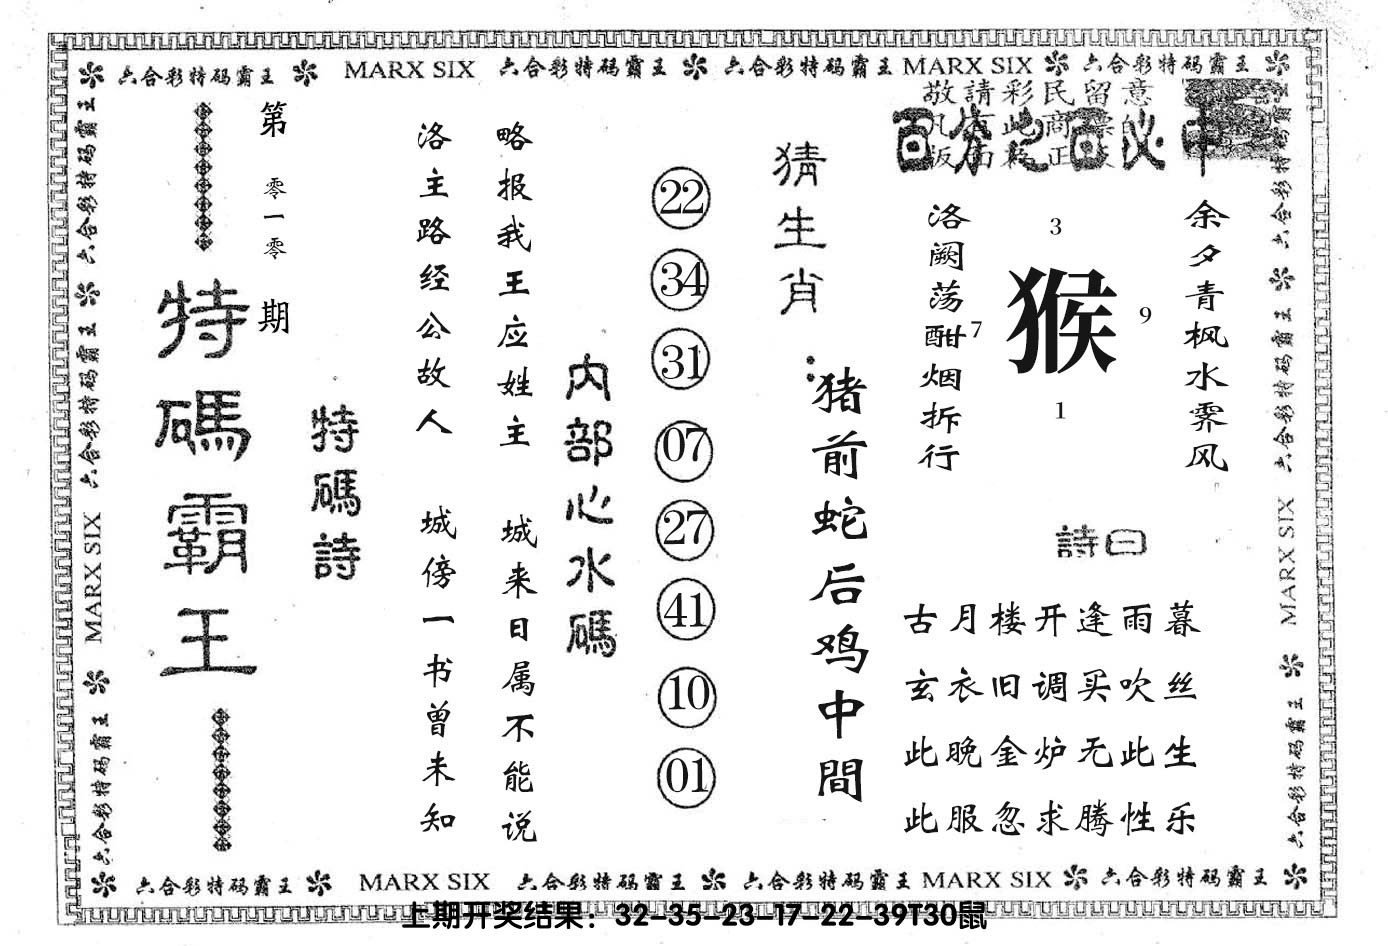 六合彩特码霸王 MARX SIX 六合彩特码霸王 六合彩特码霸王 MARX SIX 六合彩特码霸王
敬請彩民留意
百分之百必中
余夕青枫水霁风
洛阙荡酣烟拆行
3
7
猴
9
1
詩曰
古月楼开逢雨暮
玄衣旧调买吹丝
此晚金炉无此生
此服忽求腾性乐
猜生肖：
猪前蛇后鸡中間
22
34
31
07
27
41
10
01
内部心水碼
略报我王应姓主 城来日属不能说
洛主路经公故人 城傍一书曾未知
特碼詩
第零一零期
特碼霸王
六合彩特码霸王 六合彩特码霸王 MARX SIX 六合彩特码霸王
六合彩特码霸王 六合彩特码霸王 MARX SIX 六合彩特码霸王
六合彩特码霸王 MARX SIX 六合彩特码霸王 六合彩特码霸王 MARX SIX 六合彩特码霸王
上期开奖结果：32-35-23-17-22-39T30鼠